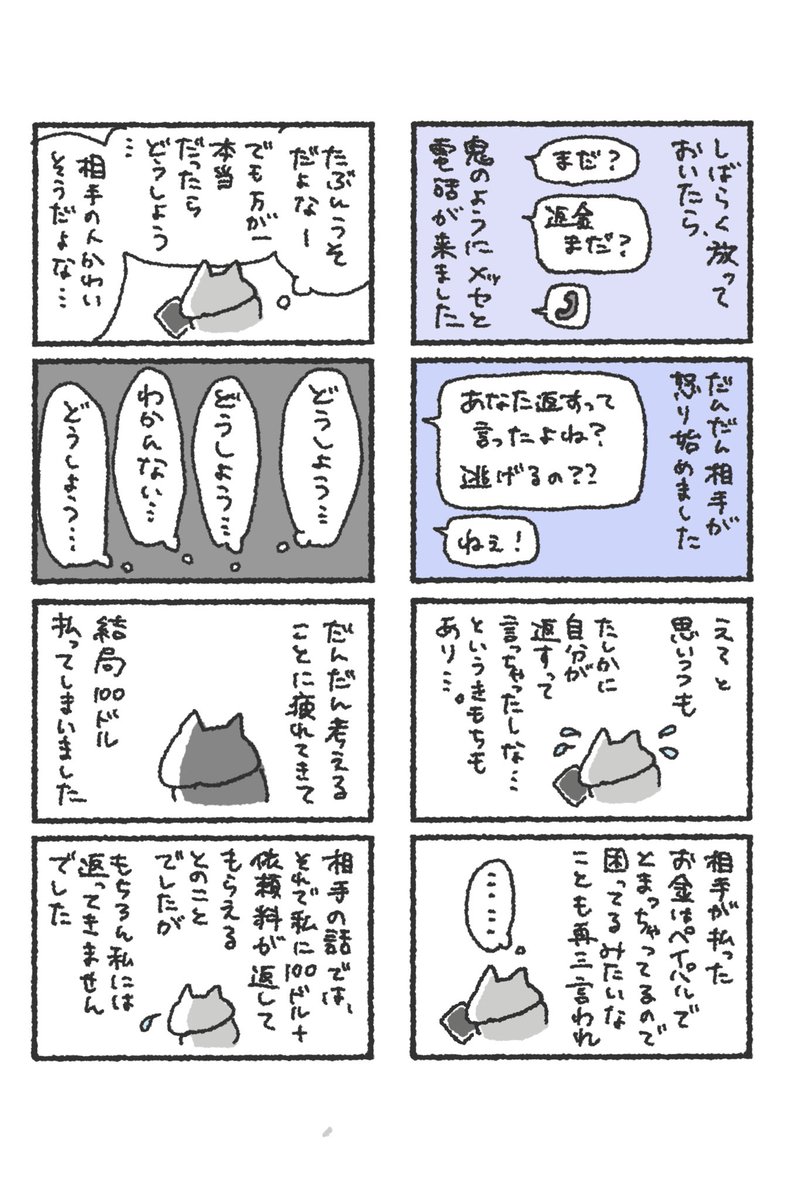 しばらく放って
おいたら、
まだ？
返金
まだ？
鬼のようにメッセと
電話が来ました
だんだん相手が
怒り始めました
あなた返すって
言ったよね？
逃げるの？？
ねぇ！
えてと
思いつつも
たしかに
自分が
返すって
言っちゃったしな…
というきもちも
あり…。
相手が払った
お金はペイパルで
とまっちゃってるので
困ってるみたいな
ことも再三言われ
……
たぶんうそ
だよなー
でも万が一
本当
だったら
どうしよう
…
相手の人かわい
そうだよな…
どうしよう…
どうしよう…
わかんない…
どうしよう…
だんだん考える
ことに疲れてきて
結局100ドル
払ってしまいました
相手の話では、
それで私に100ドル+
依頼料が返して
もらえる
とのこと
でしたが
もちろん私には
返ってきません
でした